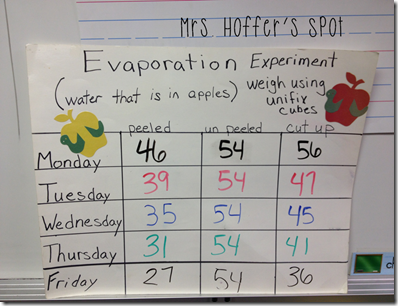 Mrs. Hoffer's Spot
Evaporation Experiment
(water that is in apples) weigh using
unifix
cubes
peeled un peeled cut up
Monday 46 54 56
Tuesday 39 54 47
Wednesday 35 54 45
Thursday 31 54 41
Friday 27 54 36